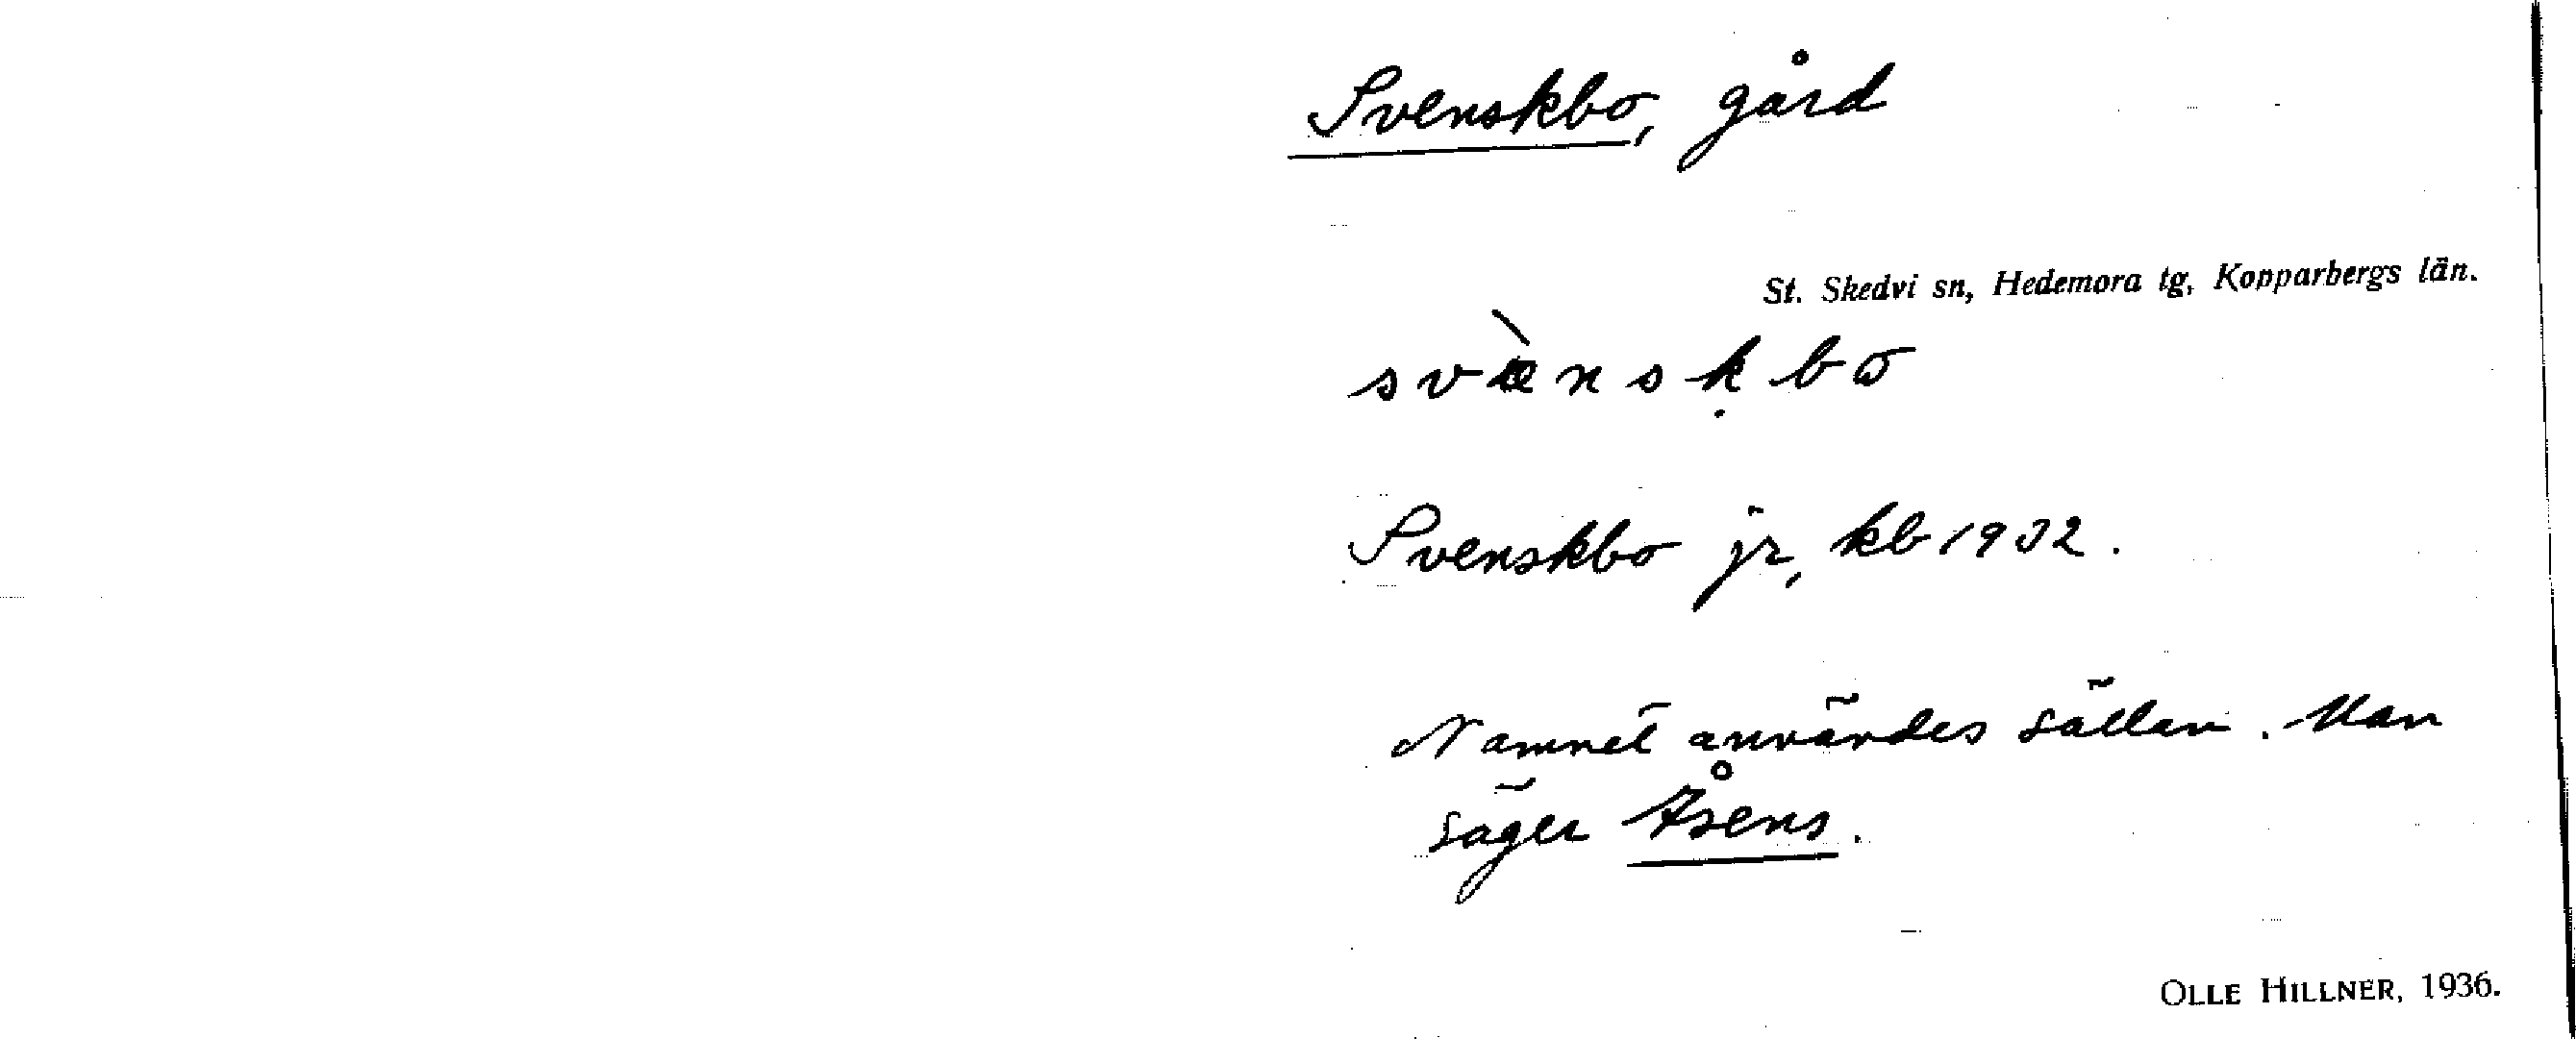 Svenskbo, gård
St. Skedvi sn, Hedemora tg, Kopparbergs län.
svæ̀nskbo
Svenskbo jr, kb 1932.
Namnet användes sällan. Man
säger Åsens.
OLLE HILLNER, 1936.